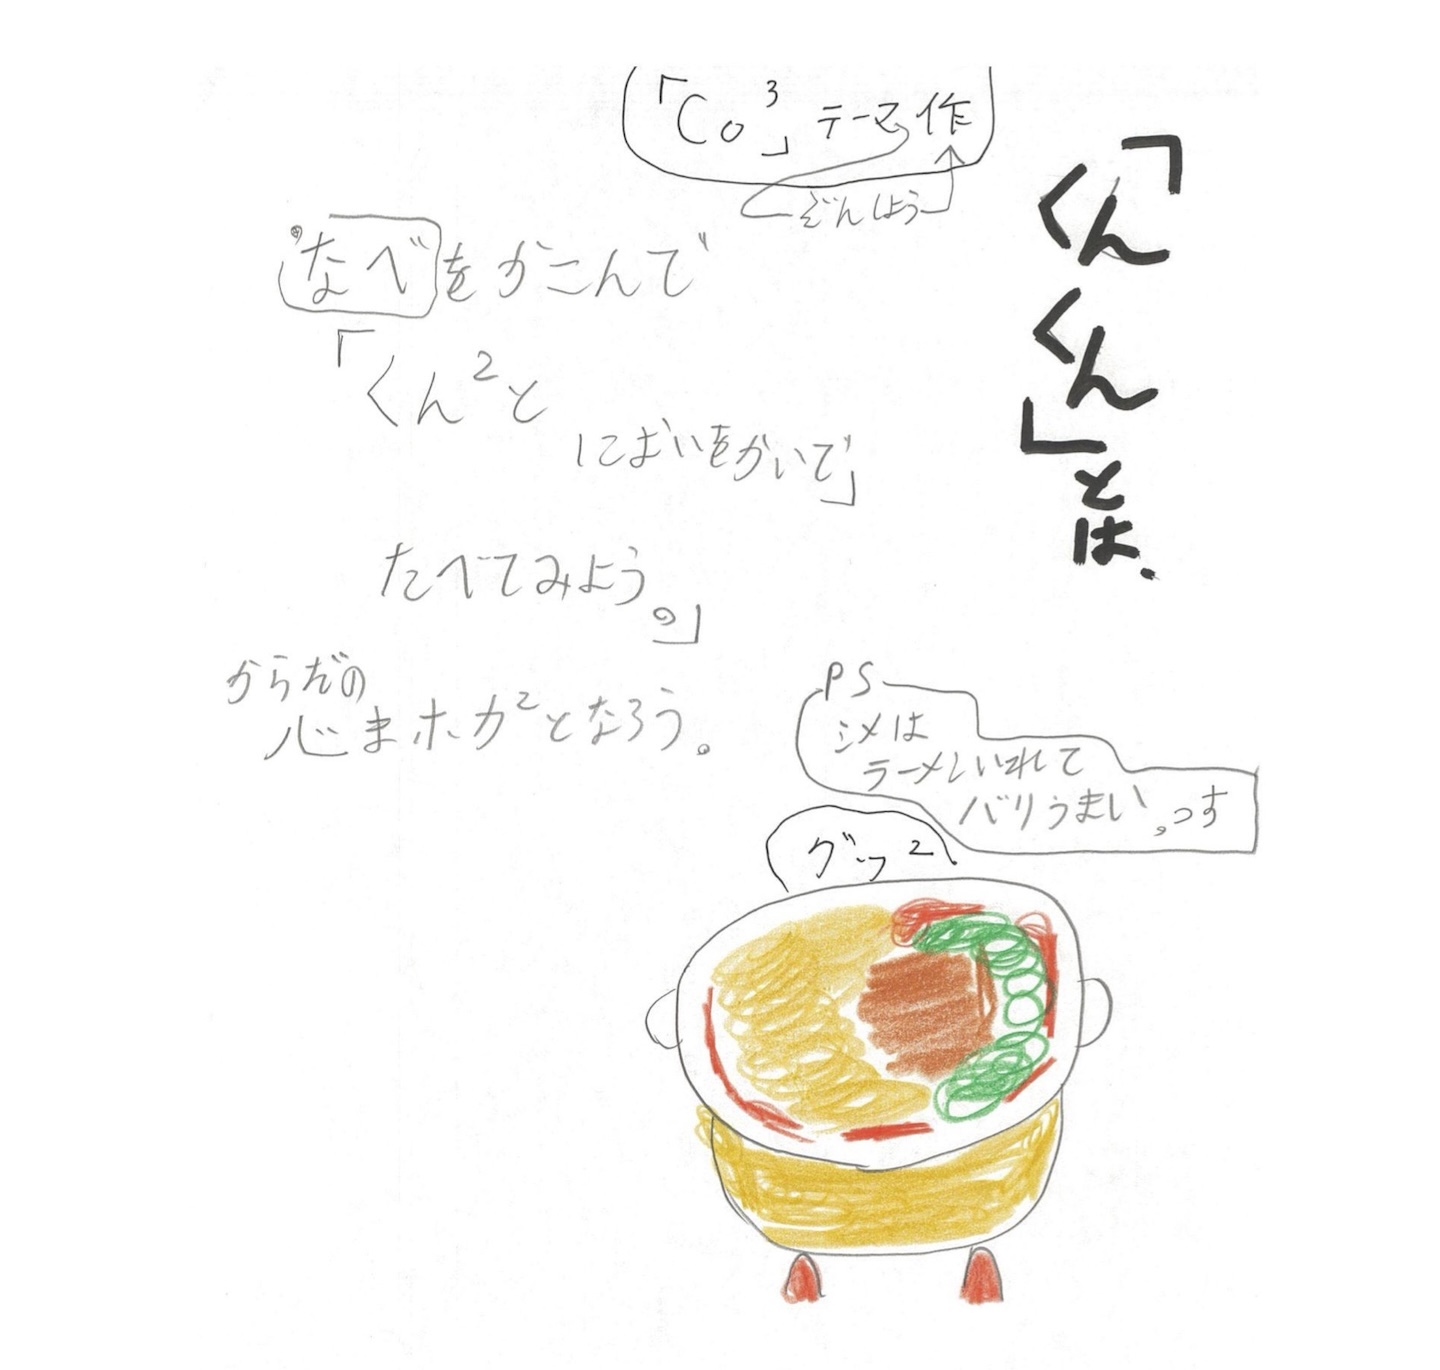 「Co³」テーマ作
ぞんしょう
「くんくん」とは.
なべをかこんで
「くん²と
においをかいで」
たべてみよう。」
からだの
心まホカ²となろう。
PS
シメは
ラーメンいれて
バリうまい。っす
グッ²